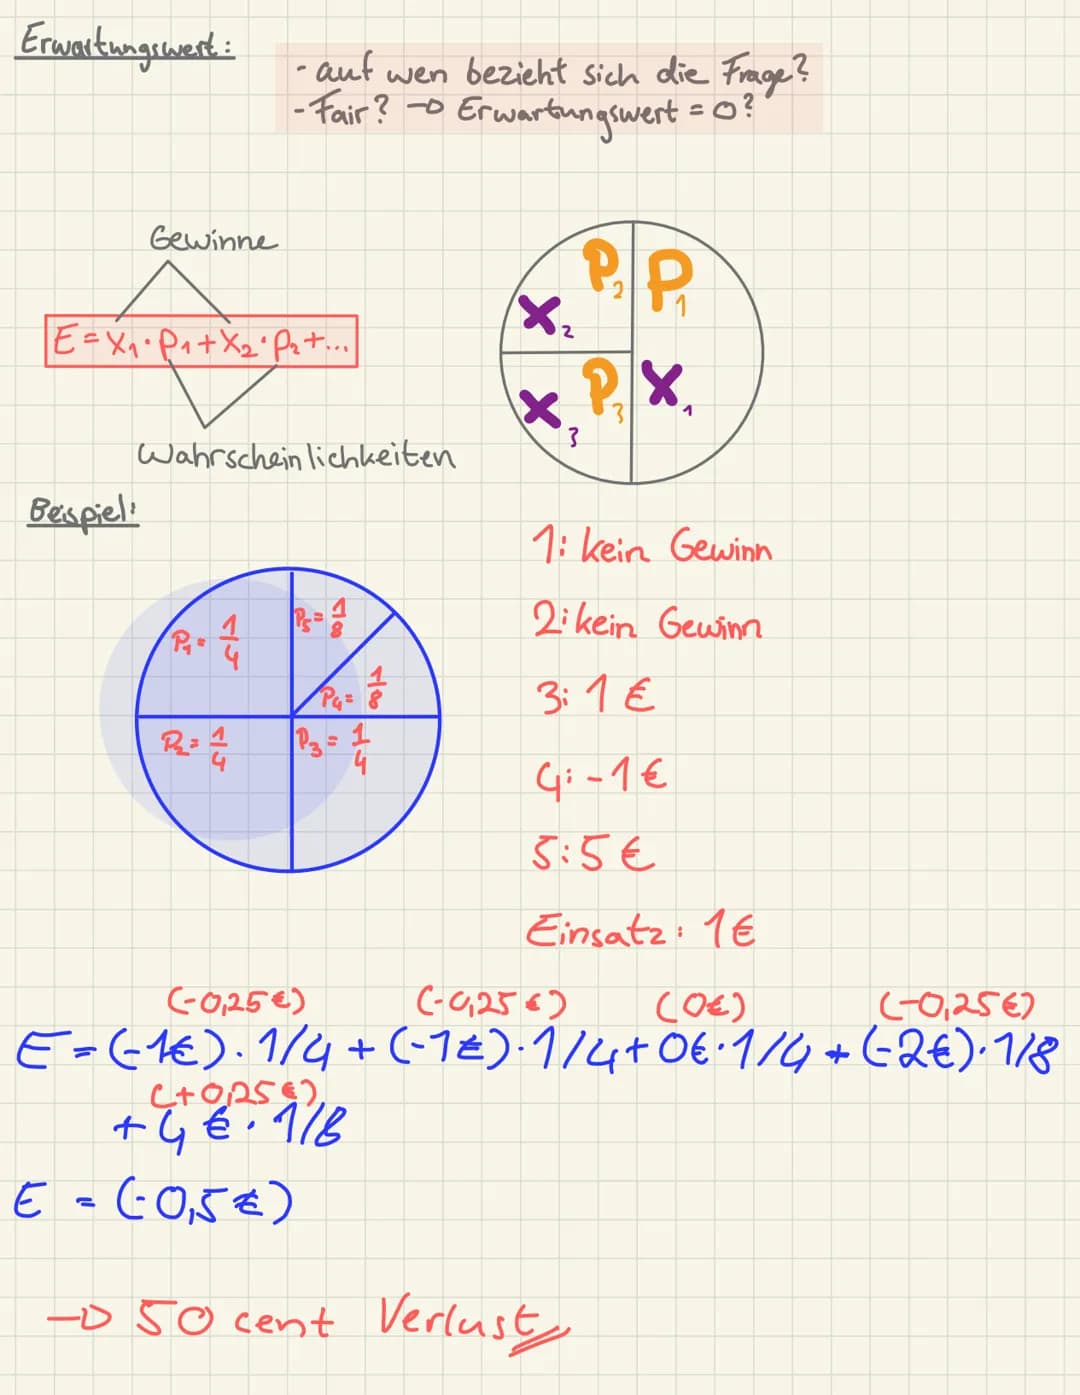 Erwartungswert:
- auf wen bezieht sich die Frage?
- Fair? → Erwartungswert = 0?
Gewinne
E = x₁ · p₁ + x₂ · p₂ + ...
Wahrscheinlichkeiten
P₂ P₁
X₂
P₃ X₁
X₃
Beispiel:
P₁ = 1/4
P₅ = 1/8
P₄ = 1/8
P₂ = 1/4
P₃ = 1/4
1: kein Gewinn
2: kein Gewinn
3: 1 €
4: -1 €
5: 5 €
Einsatz: 1 €
(-0,25 €) (-0,25 €) (0€) (-0,25 €)
E = (-1€) · 1/4 + (-1€) · 1/4 + 0€ · 1/4 + (-2€) · 1/8
(+0,25 €)
+ 4 € · 1/8
E = (-0,5 €)
→ 50 cent Verlust